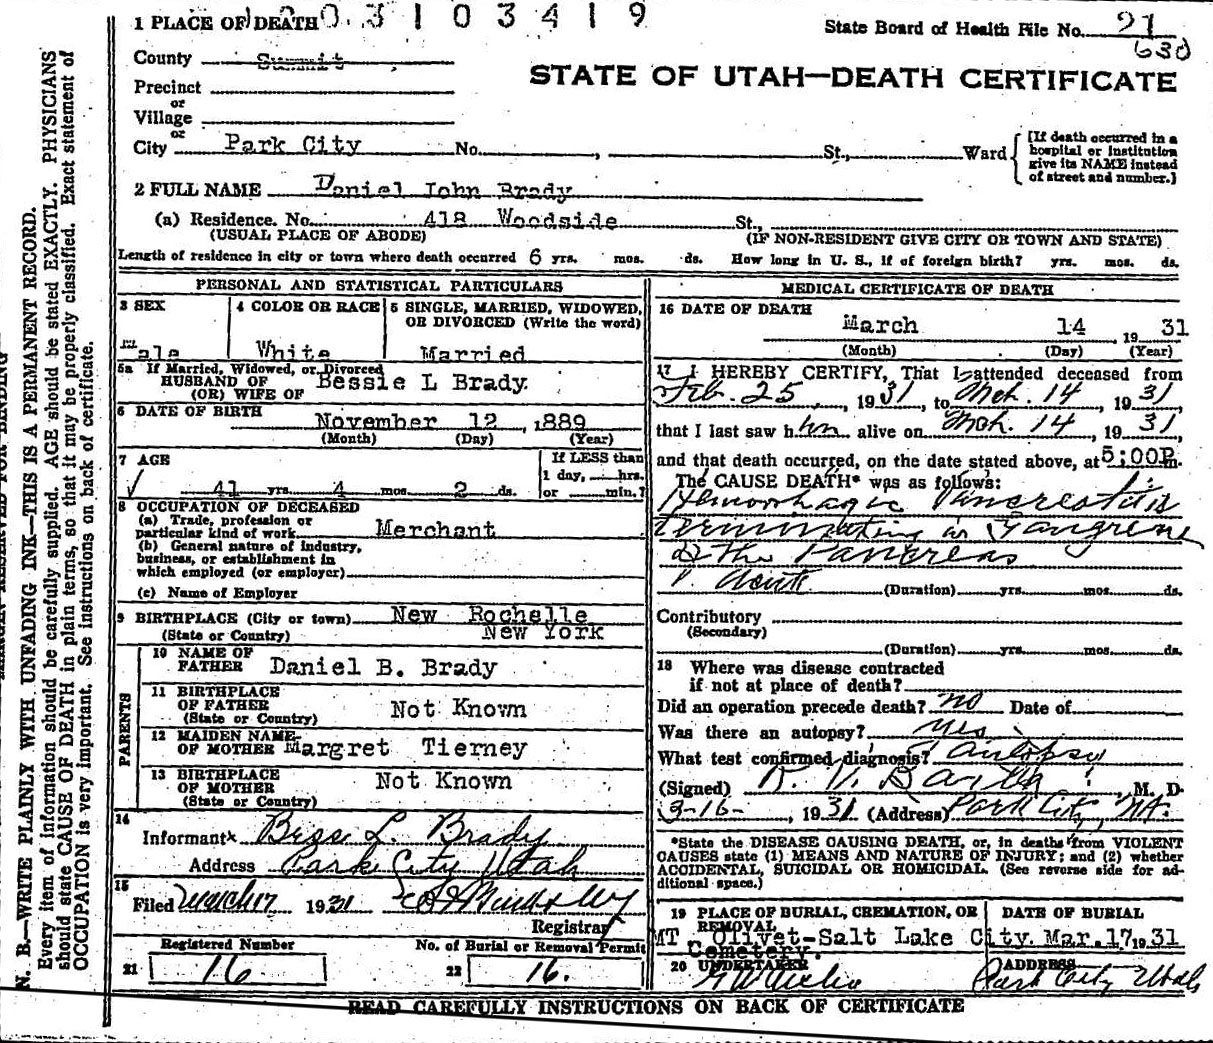 1 PLACE OF DEATH 0 3 1 0 3 4 1 9
State Board of Health File No. 21
630
County Summit
STATE OF UTAH—DEATH CERTIFICATE
Precinct
or
Village
or
City Park City No. , St., Ward
[If death occurred in a
hospital or institution
give its NAME instead
of street and number.]
2 FULL NAME Daniel John Brady
(a) Residence. No. 418 Woodside St.,
(USUAL PLACE OF ABODE) (IF NON-RESIDENT GIVE CITY OR TOWN AND STATE)
Length of residence in city or town where death occurred 6 yrs. mos. ds. How long in U. S., if of foreign birth? yrs. mos. ds.
PERSONAL AND STATISTICAL PARTICULARS
3 SEX
Male
4 COLOR OR RACE
White
5 SINGLE, MARRIED, WIDOWED,
OR DIVORCED (Write the word)
Married
5a If Married, Widowed, or Divorced
HUSBAND OF
(OR) WIFE OF
Bessie L Brady
6 DATE OF BIRTH
November 12 , 1889
(Month) (Day) (Year)
7 AGE
41 yrs. 4 mos. 2 ds.
If LESS than
1 day, hrs.
or min.?
8 OCCUPATION OF DECEASED
(a) Trade, profession or
particular kind of work Merchant
(b) General nature of industry,
business, or establishment in
which employed (or employer)
(c) Name of Employer
9 BIRTHPLACE (City or town) New Rochelle
(State or Country) New York
PARENTS
10 NAME OF
FATHER Daniel B. Brady
11 BIRTHPLACE
OF FATHER Not Known
(State or Country)
12 MAIDEN NAME
OF MOTHER Margret Tierney
13 BIRTHPLACE
OF MOTHER Not Known
(State or Country)
14
Informant Bess L. Brady
Address Park City Utah
15
Filed March 17 1931
Registrar
Registered Number
21 16
No. of Burial or Removal Permit
22 16.
MEDICAL CERTIFICATE OF DEATH
16 DATE OF DEATH
March 14 , 19 31
(Month) (Day) (Year)
17 I HEREBY CERTIFY, That I attended deceased from
Feb. 25 , 1931, to Mch. 14 , 1931
that I last saw him alive on Mch. 14 , 19 31,
and that death occurred, on the date stated above, at 5:00P.m.
The CAUSE DEATH* was as follows:
Hemorrhagic Pancreatitis
terminating in Gangrene
of the Pancreas
Acute (Duration) yrs. mos. ds.
Contributory
(Secondary)
(Duration) yrs. mos. ds.
18 Where was disease contracted
if not at place of death?
Did an operation precede death? no Date of
Was there an autopsy? Yes
What test confirmed diagnosis? autopsy
(Signed) R. V. Barth , M. D.
3-16- , 1931 (Address) Park City, Ut.
*State the DISEASE CAUSING DEATH, or, in deaths from VIOLENT
CAUSES state (1) MEANS AND NATURE OF INJURY; and (2) whether
ACCIDENTAL, SUICIDAL OR HOMICIDAL. (See reverse side for ad-
ditional space.)
19 PLACE OF BURIAL, CREMATION, OR
REMOVAL
MT Olivet-Salt Lake City.
Cemetery.
DATE OF BURIAL
Mar. 17 1931
20 UNDERTAKER
ADDRESS
Park City Utah
READ CAREFULLY INSTRUCTIONS ON BACK OF CERTIFICATE
N. B.—WRITE PLAINLY WITH UNFADING INK—THIS IS A PERMANENT RECORD.
Every item of information should be carefully supplied. AGE should be stated EXACTLY. PHYSICIANS
should state CAUSE OF DEATH in plain terms, so that it may be properly classified. Exact statement of
OCCUPATION is very important. See instructions on back of certificate.